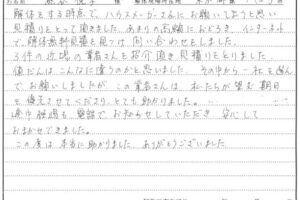 解体をする時点で、ハウスメーカーさんにお願いしようと思い
見積りをとって頂きました。あまりの高額におどろき、インターネット
で、解体無料見積を見つけ問い合わせをしました。
3件の近場の業者さんを紹介頂き見積りをとりました。
値だんはこんなに違うのかと思いました。その中から一社を選んで
お願いしましたが、この業者さんは、私たちが望む期日
を優先させてくださり、とても助かりました。
途中経過も電話でお知らせしていただき、安心して
おまかせできました。
この度は本当に助かりました。ありがとうございました。